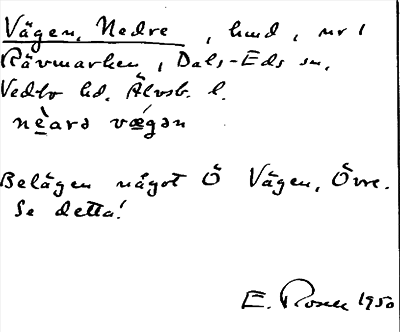 Vägen, Nedre, hmd, nr 1
Rävmarken, Dals-Eds sn,
Vedbo hd, Älvsb. l.
nèarə vægən
Belägen något Ö Vägen, Övre.
Se detta!
E. Rosell 1950